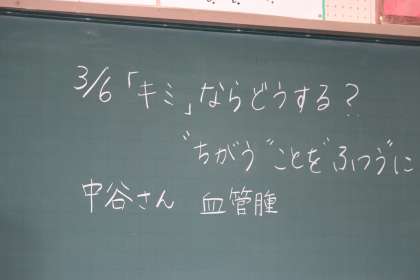 3/6「キミ」ならどうする?
"ちがう"ことを"ふつう"に
中谷さん 血管腫